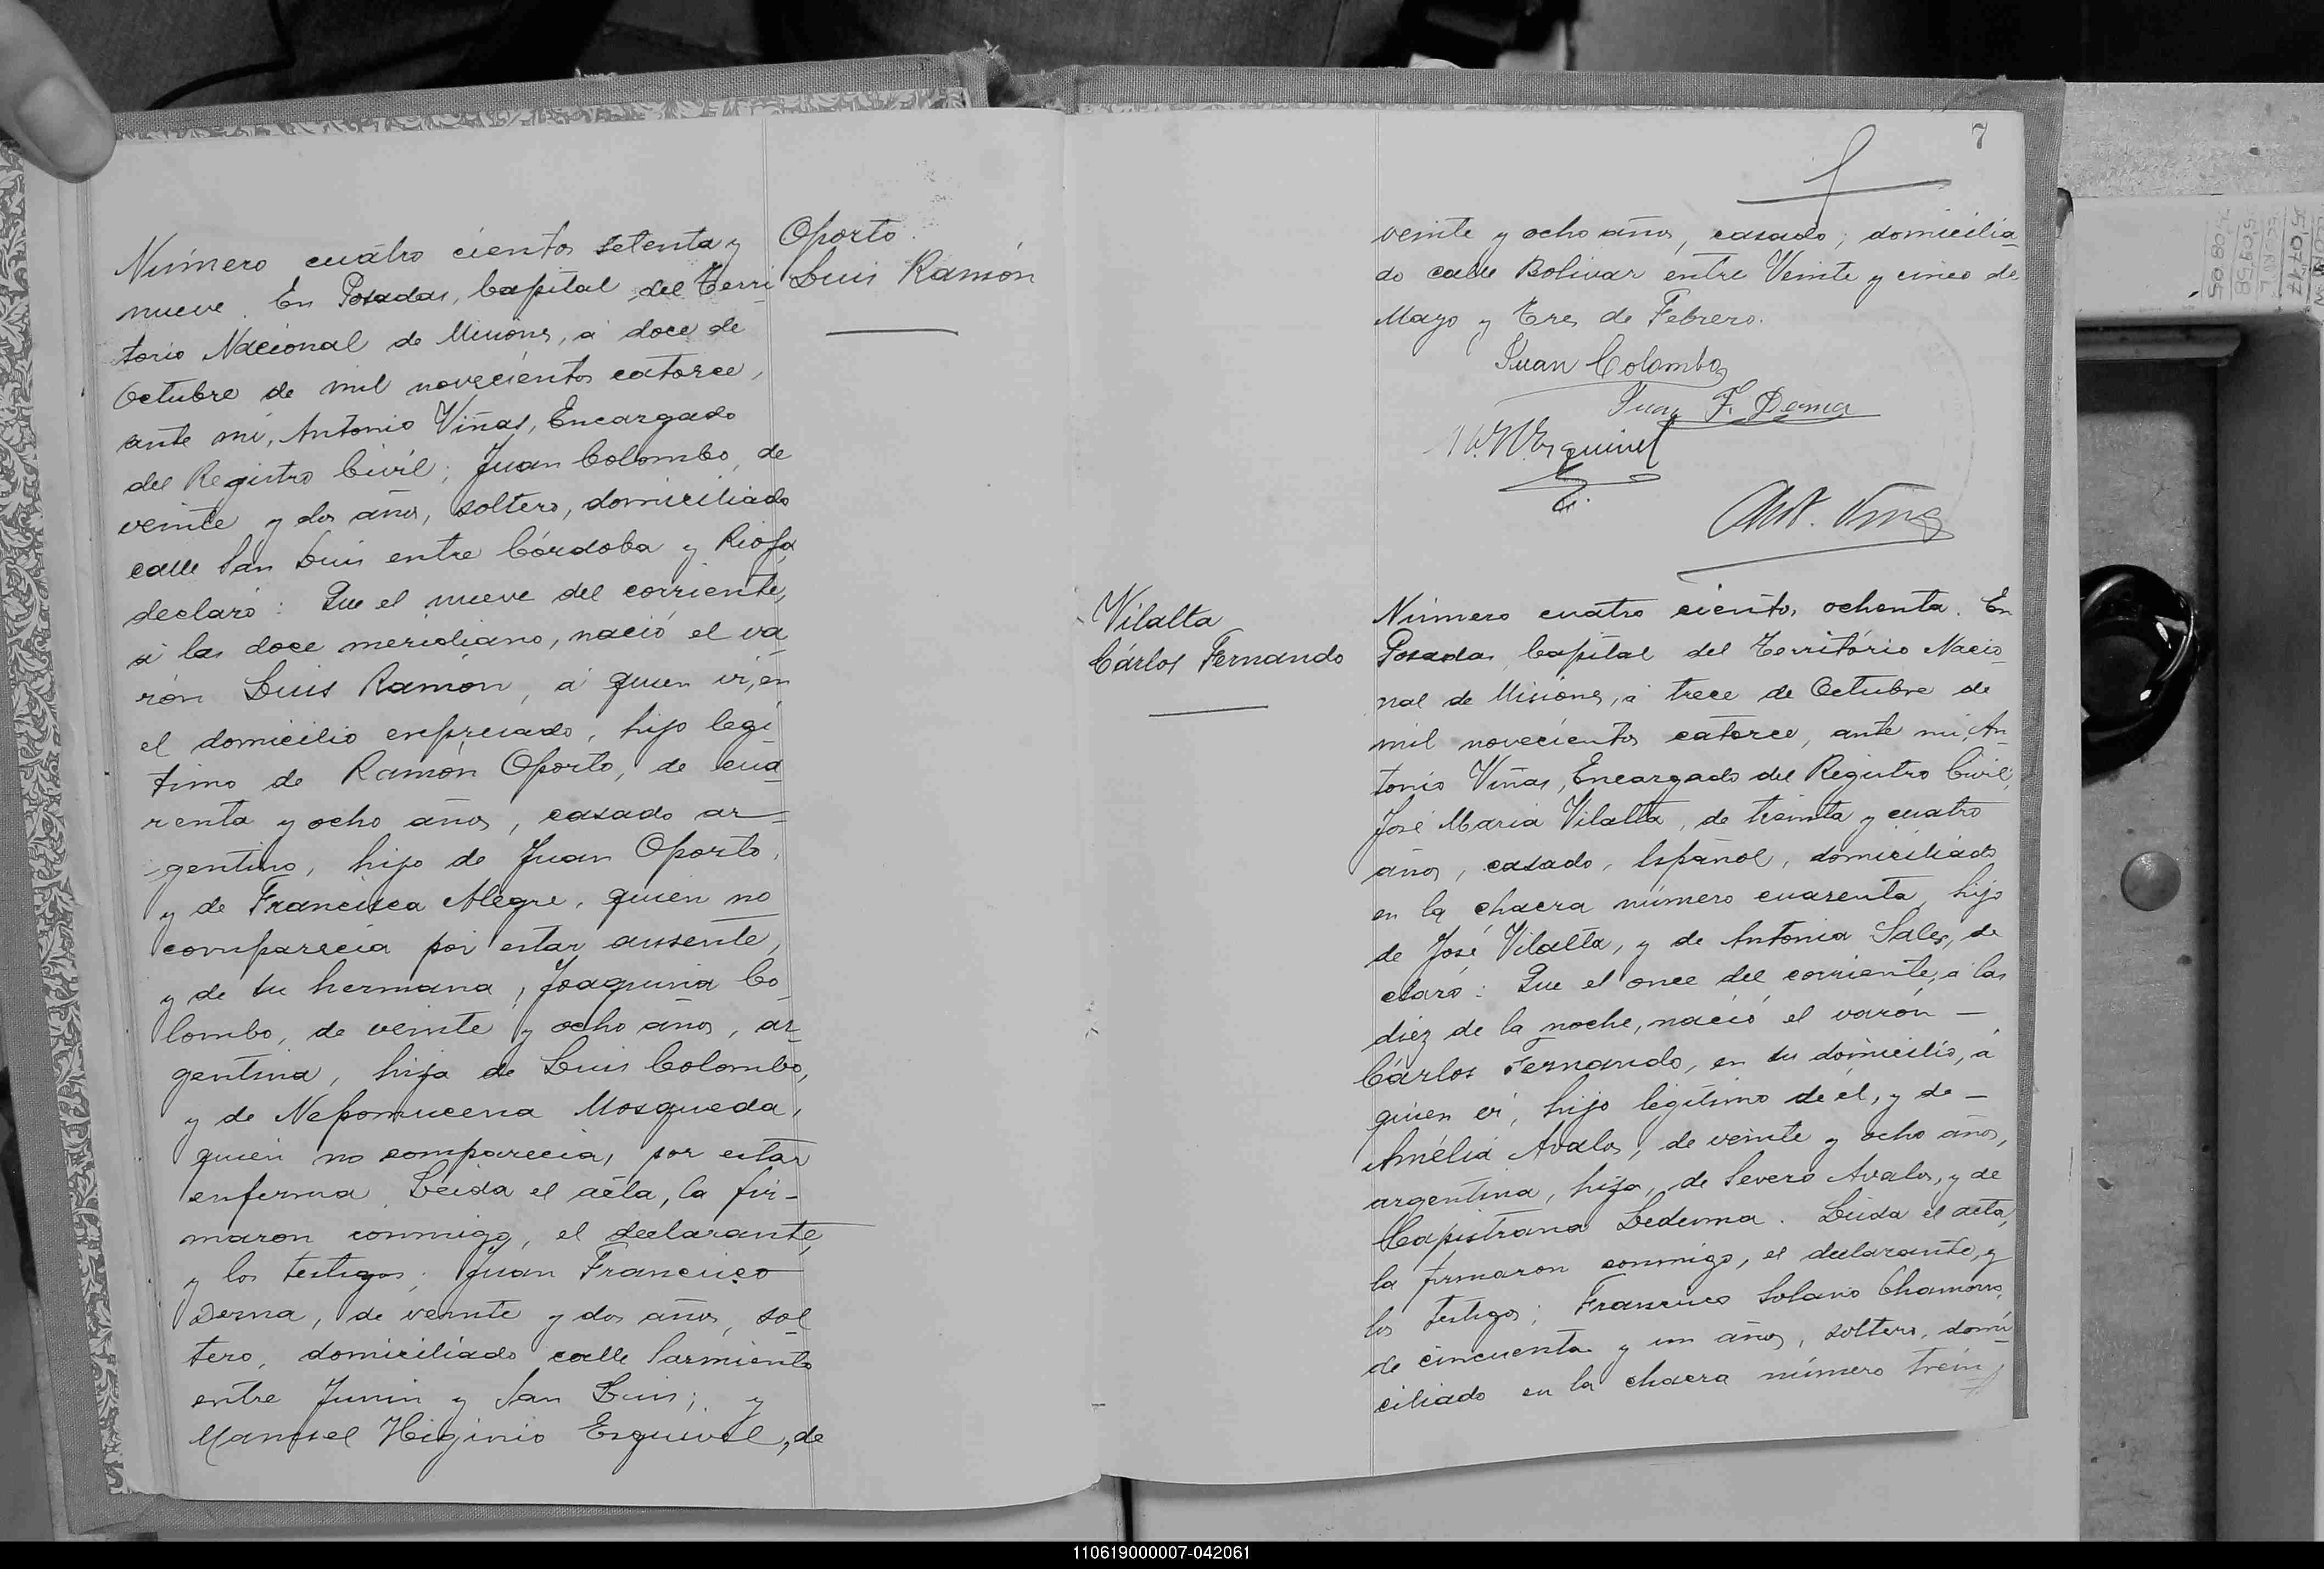 Oporto
Luis Ramón
Número cuatro cientos setenta y
nueve. En Posadas, Capital del Terri
torio Nacional de Misiones, á doce de
Octubre de mil novecientos catorce,
ante mí, Antonio Viñas, Encargado
del Registro Civil; Juan Colombo, de
veinte y dos años, soltero, domiciliado
calle San Luis entre Córdoba y Rioja,
declaró: Que el nueve del corriente,
á las doce meridiano, nació el va-
rón Luis Ramón, á quien ví, en
el domicilio expresado, hijo legí-
timo de Ramón Oporto, de cua-
renta y ocho años, casado ar=
gentino, hijo de Juan Oporto,
y de Francisca Alegre, quien no
comparecía por estar aussente,
y de su hermana, Joaquina Co-
lombo, de veinte y ocho años, ar-
gentina, hija de Luis Colombo,
y de Nepomucena Mosqueda,
quien no comparecía, por estar
enferma. Leida el acta, la fir-
maron conmigo, el declarante,
y los testigos; Juan Francisco
Derna, de veinte y dos años, sol
tero, domiciliado calle Sarmiento
entre Junin y San Luis; y
Manuel Higinio Esquivel, de
7
veinte y ocho años, casado; domicilia-
do calle Bolivar entre Veinte y cinco de
Mayo y Tres de Febrero.
Juan Colombo
Juan F. Derna
Esquivel
Ant. Viñas
Vilalta
Cárlos Fernando
Número cuatro cientos ochenta. En
Posadas, Capital del Território Nacio-
nal de Misiones, á trece de Octubre de
mil novecientos catorce, ante mí, An-
tonio Viñas, Encargado del Registro Civil;
José Maria Vilalta, de treinta y cuatro
años, casado, español, domiciliado
en la chacra número cuarenta, hijo
de José Vilalta, y de Antonia Sales, de
claró: Que el once del corriente, á las
diez de la noche, nació el varón —
Cárlos Fernando, en su domicilio, á
quien ví, hijo legítimo de él, y de —
Amélia Avalos, de veinte y ocho años,
argentina, hija, de Severo Avalos, y de
Capistrana Ledesma. Leida el acta,
la firmaron conmigo, el declarante, y
los testigos; Francisco Solano Chamorro,
de cincuenta y un años, soltero, domi-
ciliado en la chacra número trein
110619000007-042061